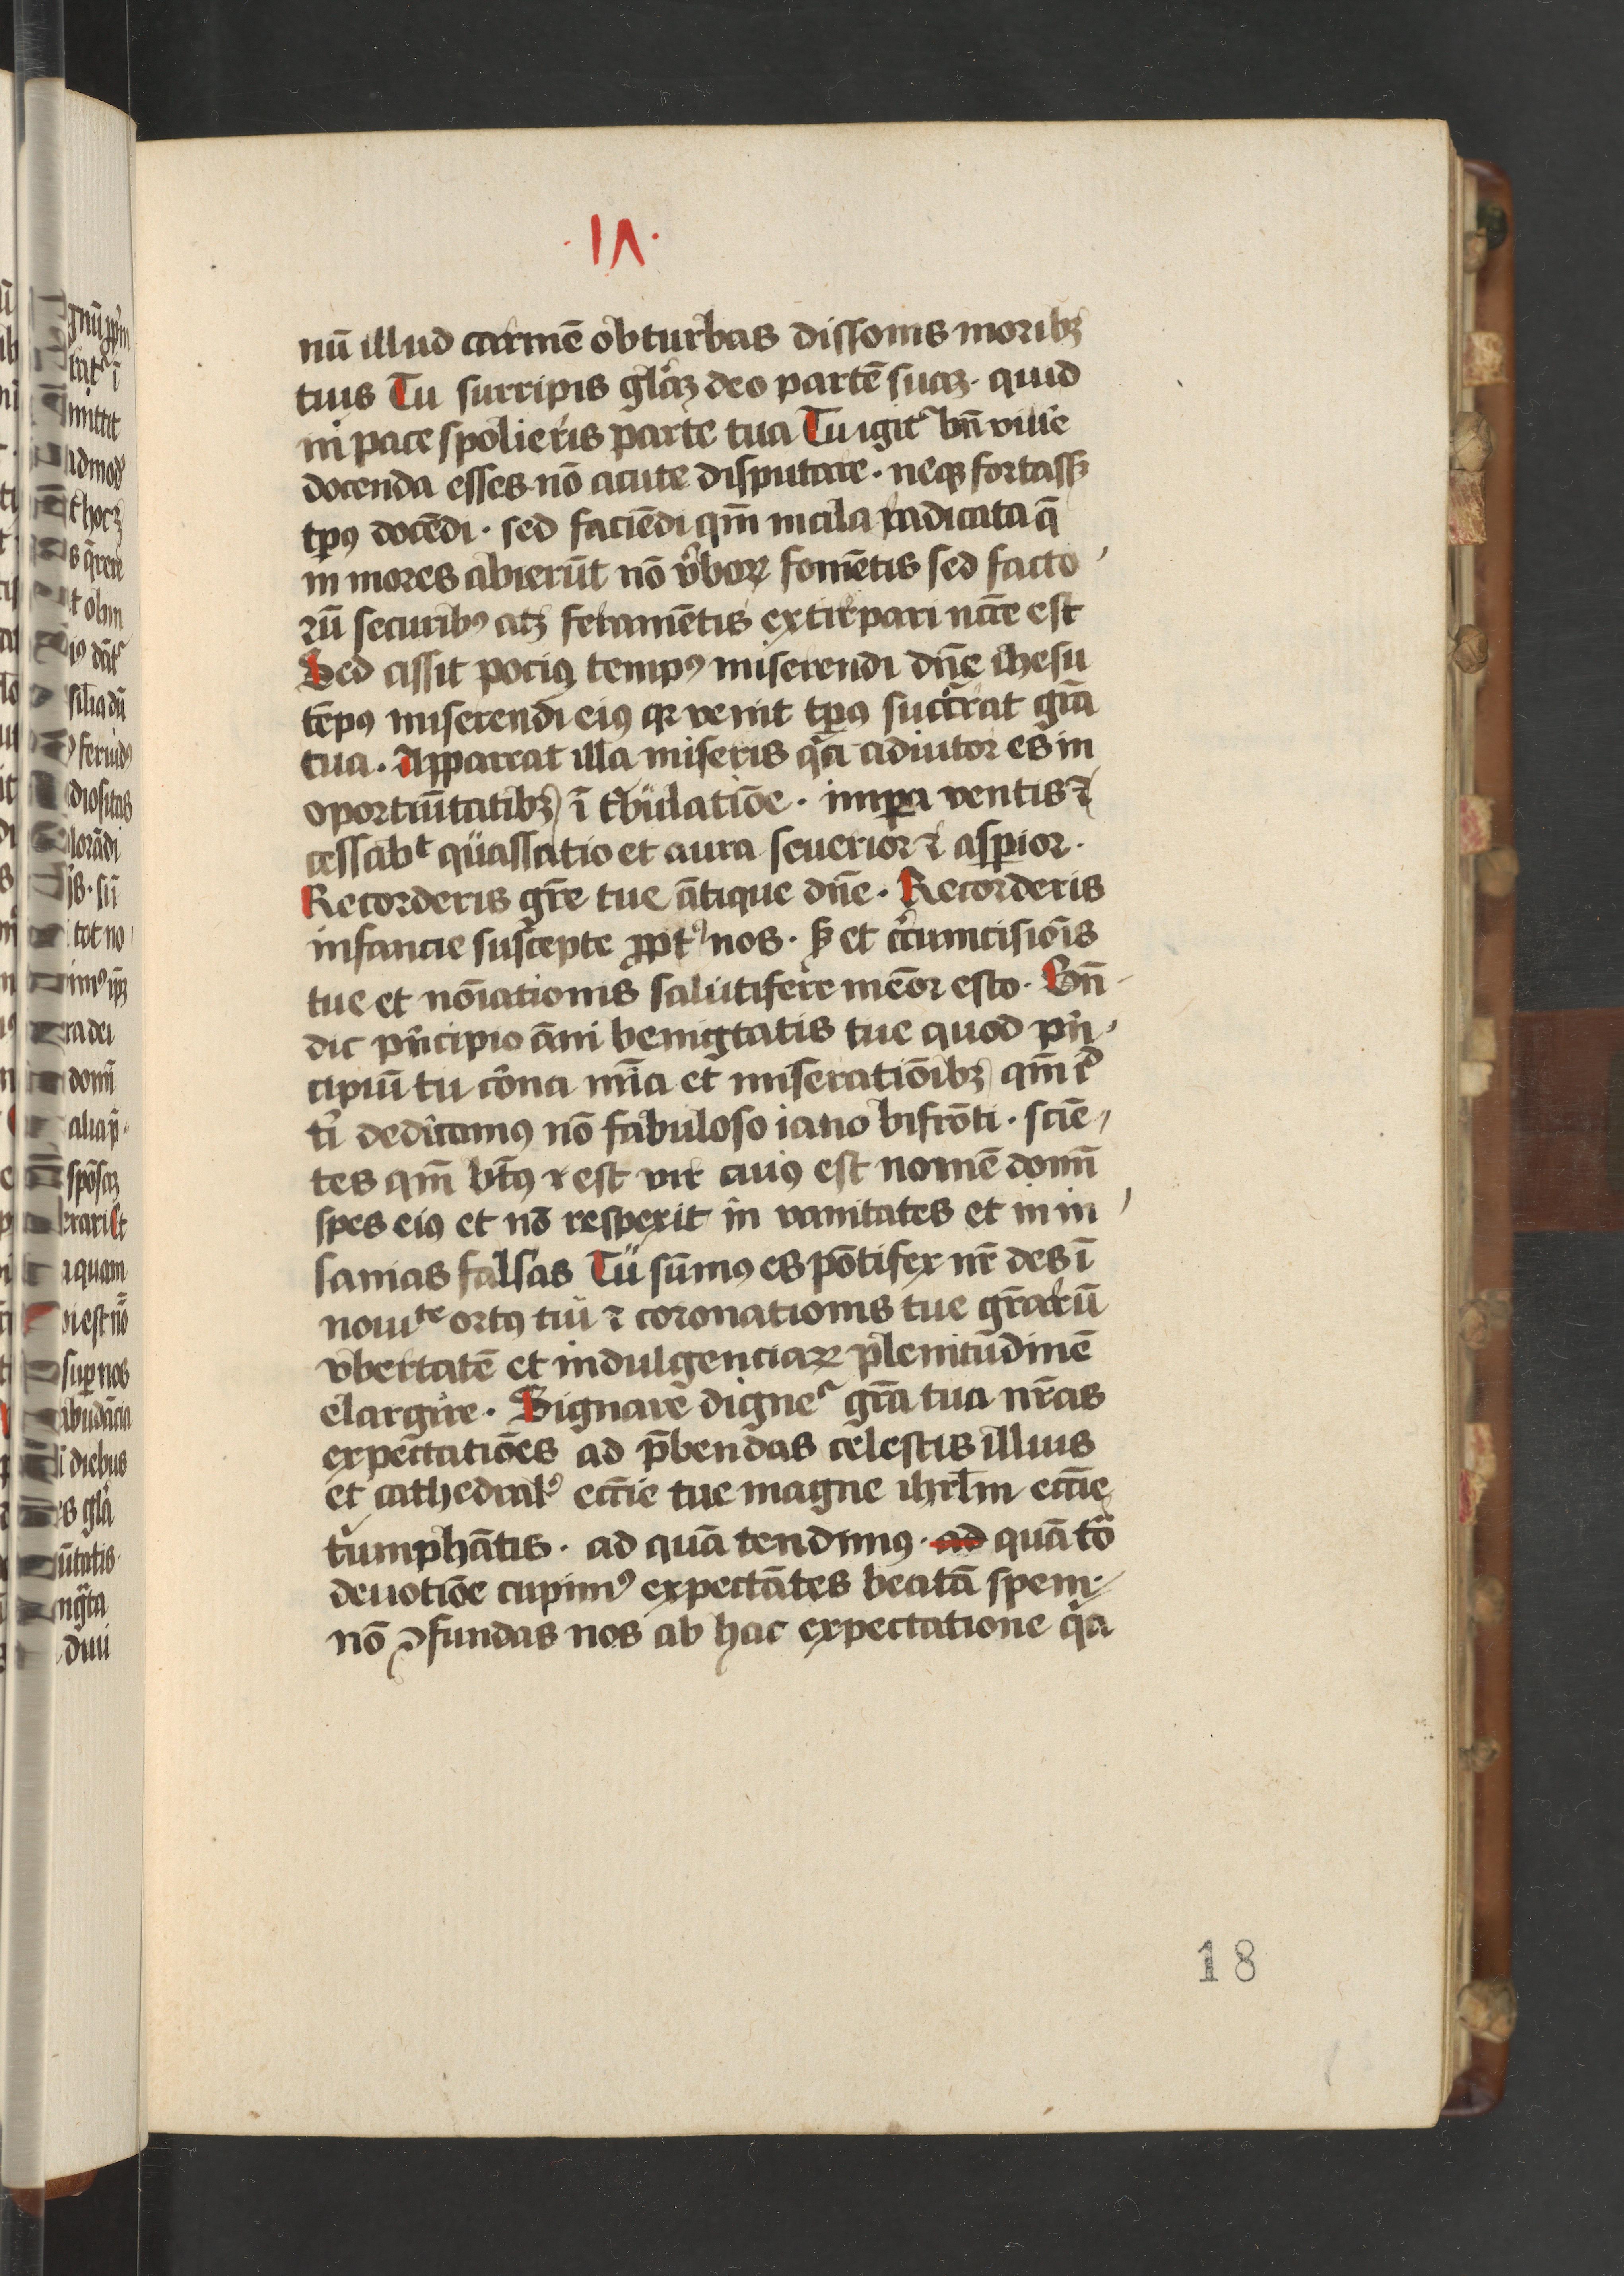 ·1Λ·
nū illud carmē obturbas dissonis moribꝫ
tuis Tu surripis gl̄aꝫ deo partē suaꝫ · quid
ni pace spolieris parte tua Tu igit᷑ bn̄ viue᷑
docenda esses nō acute disputare · neqꝫ fortassꝫ
tp̄ꝰ docēdi · sed faciēdi qm̄ mala radicata q̄
in mores abierūt nō v᷑boꝝ fomētis sed facto
rū securibꝰ atꝫ feramētis extirpari ncc̄e est
Sed assit pociꝰ tempꝰ miserendi dn̄e ihesu
tēpꝰ miserendi eiꝰ qꝛ venit tp̄ꝰ succ᷑rat gr̄a
tua · Appareat illa miseris qͣ adiutor es in
oportūitatibꝫ ī t͛bulatiōe · imꝑa ventis ⁊
cessabᵗ quassatio et aura seuerior ⁊ asꝑior ·
Recorderis gr̄e tue ātique dn̄e · Recorderis
infancie suscepte ꝓpt᷑ nos · sꝫ et c͛cumcisiōis
tue et noīationis salutifere mēor esto · Bn̄
dic pͥncipio āni benigͭtatis tue quod pͥn
cipiū tu corōa mīa et miseratiōibꝫ qm̄ iᵈ
tͥ dedicamꝰ nō fabuloso iano bifrōti · sciē
tes qm̄ bt̄ꝰ est vir cuiꝰ est nomē domī
spes eiꝰ et nō respexit in vanitates et in in
sanias falsas Tu sūmꝰ es pōtifex nr̄ des ī
nouiᵗᵉ ortꝰ tui ⁊ coronationis tue gr̄arū
vbertatē et indulgenciaꝝ plenitudinē
elargire · Signare digne᷑ gr̄a tua nr̄as
expectatiōes ad p̄bendas celestis illius
et cathedral᷑ ecc̄ie tue magne ihrl̄m ecc̄ie
tͥumphātis · ad quā tendimꝰ · ad quā tō
deuotiōe cupimꝰ expectātes beatā spem
nō ꝯfundas nos ab hac expectatione qͥa
18